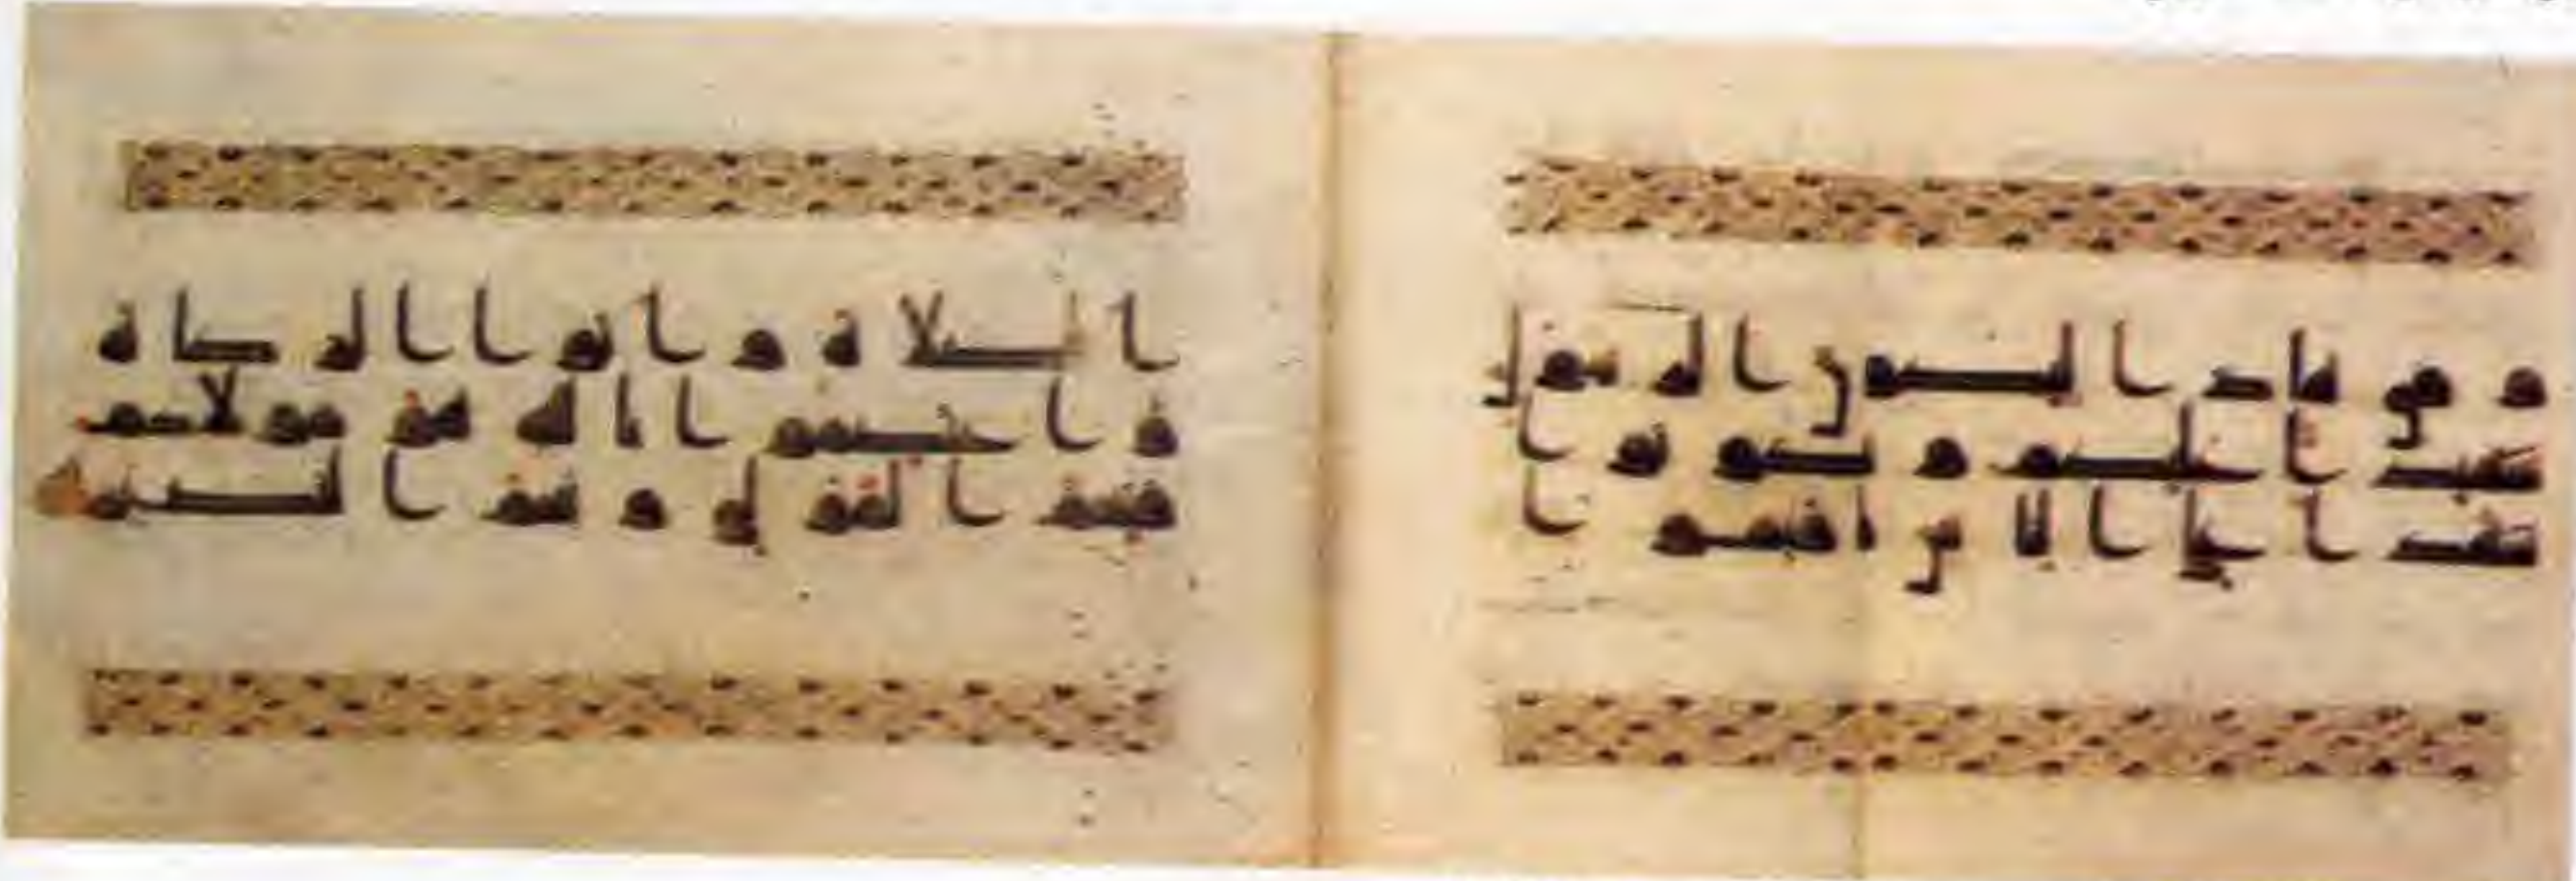 و في هذا ليكون الرسول
شهيدا عليكم و تكونوا
شهدا على الناس فاقيموا
الصلاة و اتوا الزكاة
و اعتصموا بالله هو مولاكم
فنعم المولى و نعم النصير